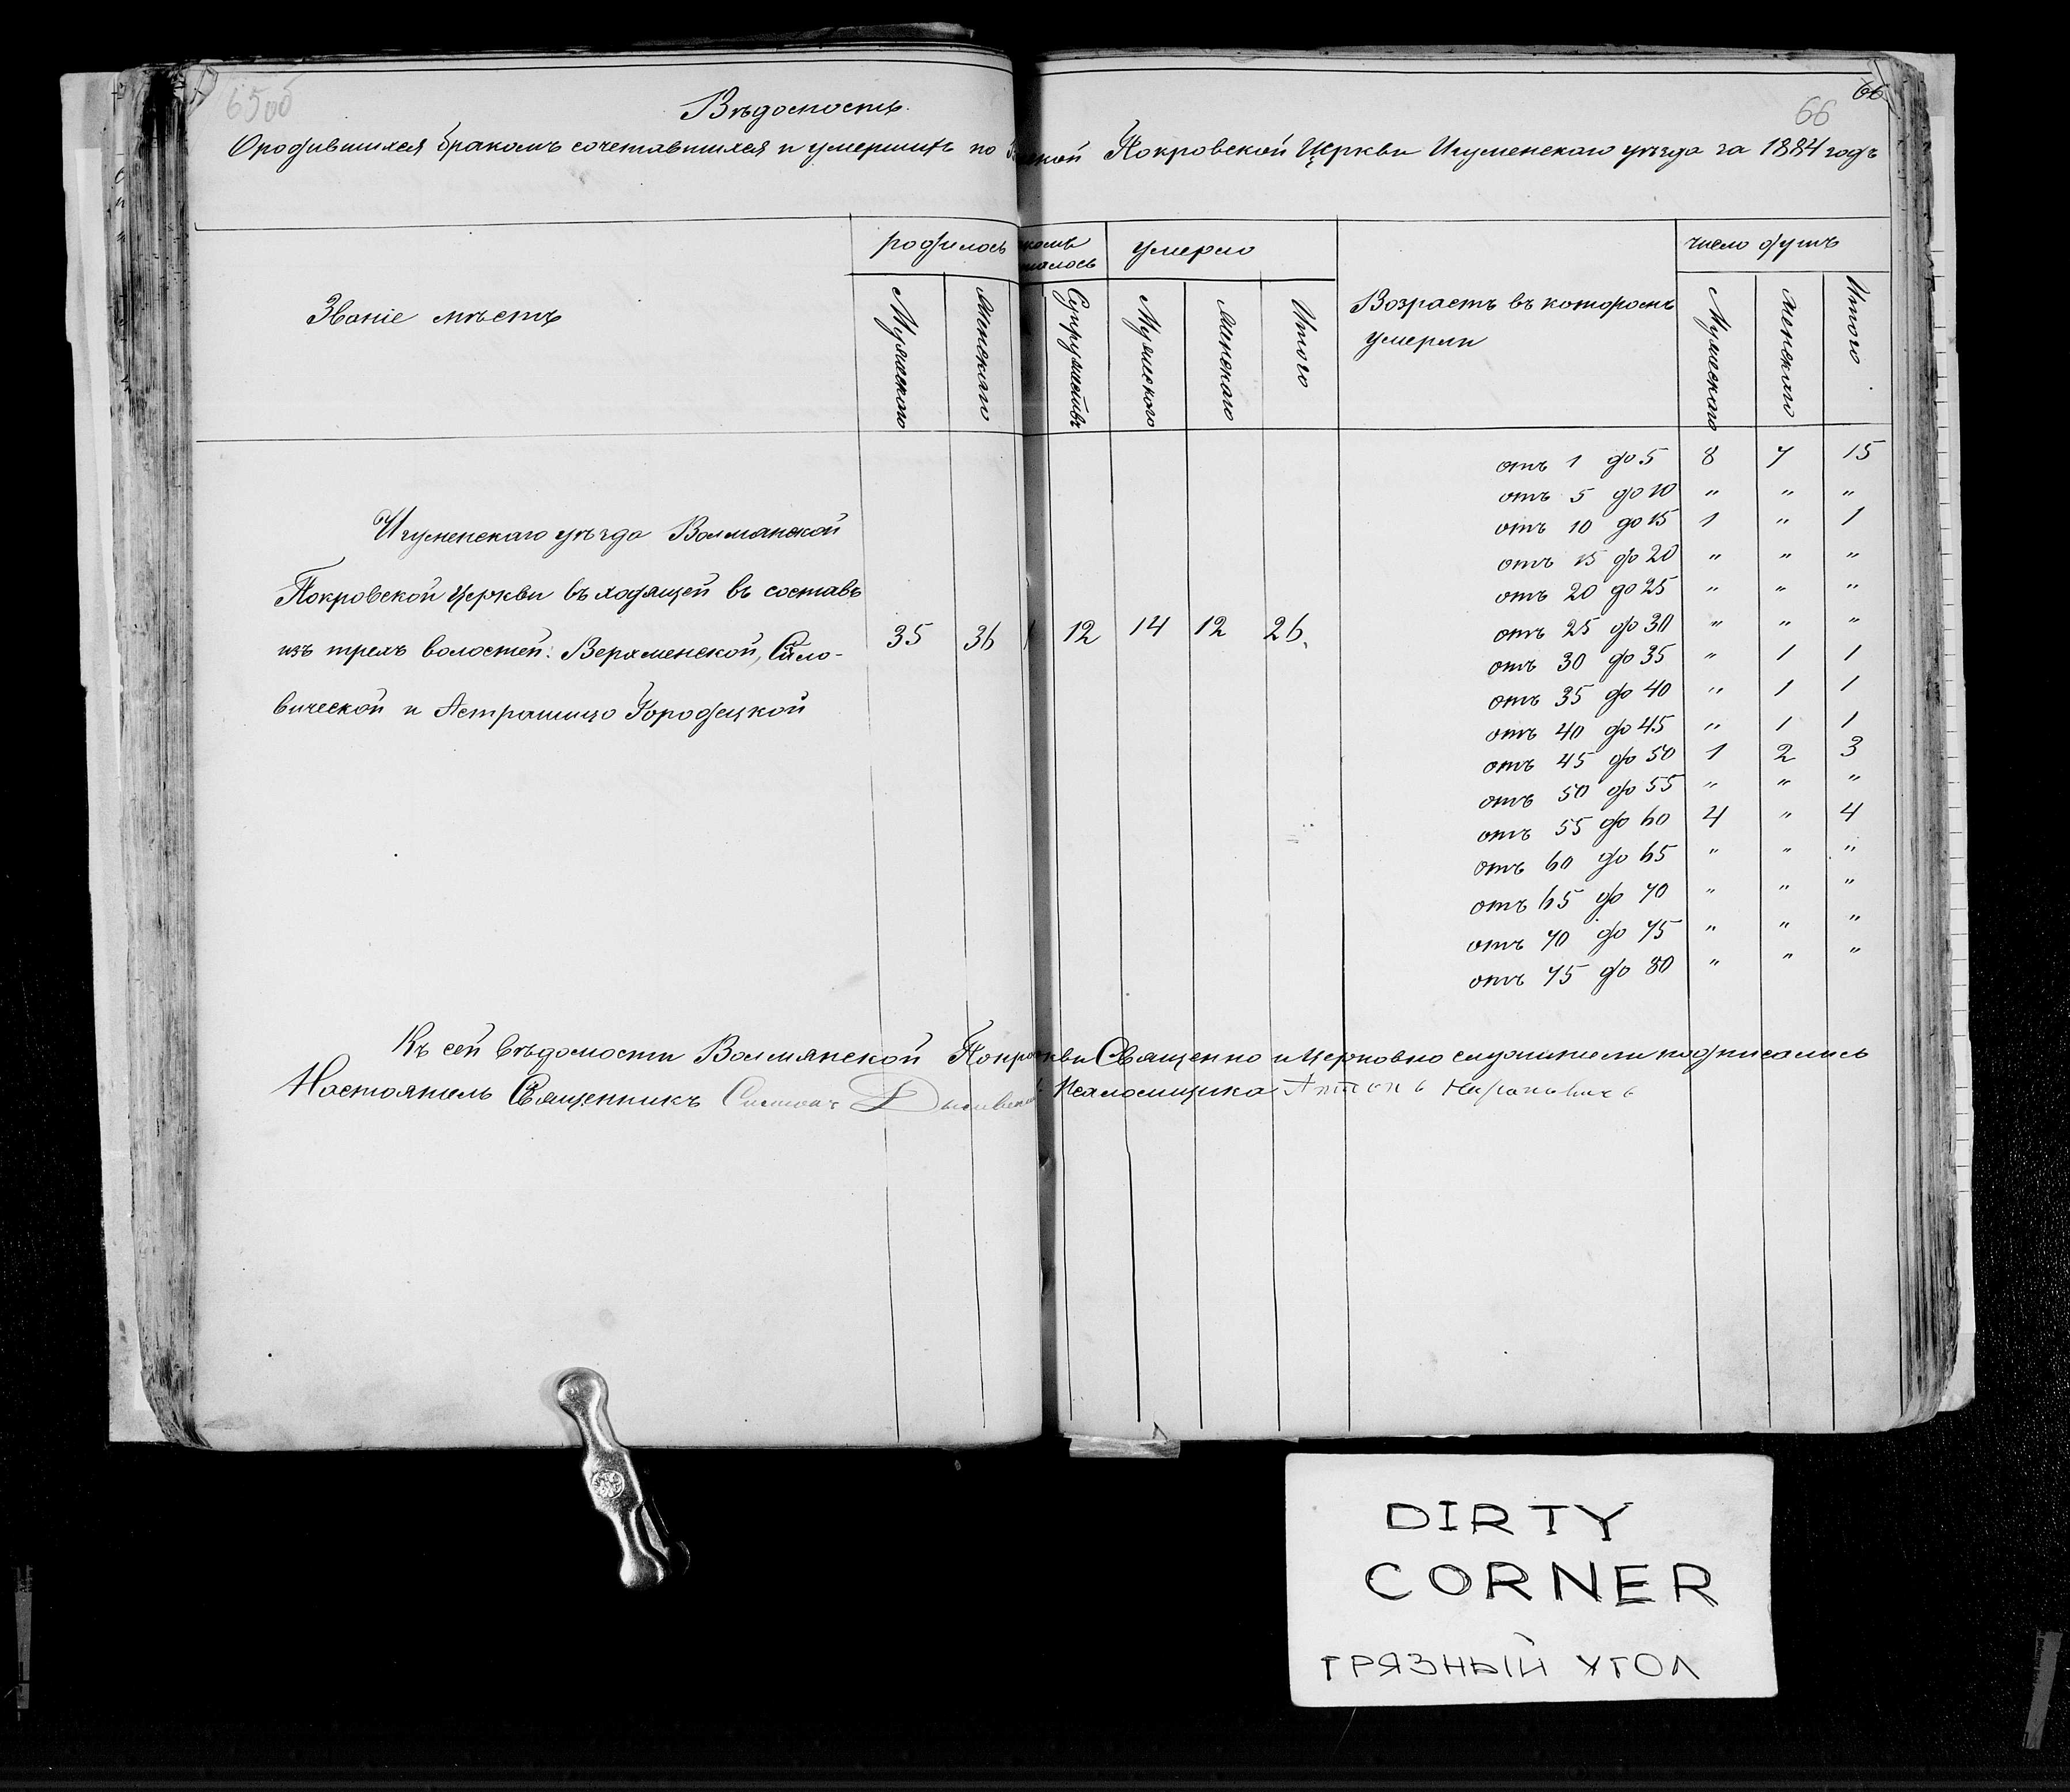 65об
66
66
Вѣдомость
О родившихся бракомъ сочетавшихся и умершихъ по ской Покровской Церкви Игуменскаго уѣзда за 1884 годъ
Званіе мѣстъ
родилось
комъ
талось
умерло
Возрастъ въ которомъ
умерли
число душъ
Мужескаго
Женскаго
Супружествъ
Мужескаго
Женскаго
Итого
Мужескаго
Женскаго
Итого
Игуменскаго уѣзда Волмянской
Покровской Церкви въ ходящей въ составъ
изъ трехъ волостей: Верхменской, Смило-
вической и Астрашицо Городецкой
35 36 12 14 12 26.
отъ 1 до 5 8 7 15
отъ 5 до 10 " " "
отъ 10 до 15 1 " 1
отъ 15 до 20 " " "
отъ 20 до 25 " " "
отъ 25 до 30 " " "
отъ 30 до 35 " 1 1
отъ 35 до 40 " 1 1
отъ 40 до 45 " 1 1
отъ 45 до 50 1 2 3
отъ 50 до 55 " " "
отъ 55 до 60 4 " 4
отъ 60 до 65 " " "
отъ 65 до 70 " " "
отъ 70 до 75 " " "
отъ 75 до 80 " " "
Къ сей вѣдомости Волмянской Покро кви Священно и церковно служители подписались
Настоятель Священникъ Симеонъ Псаломщика Антонъ
DIRTY
CORNER
ГРЯЗНЫЙ УГОЛ